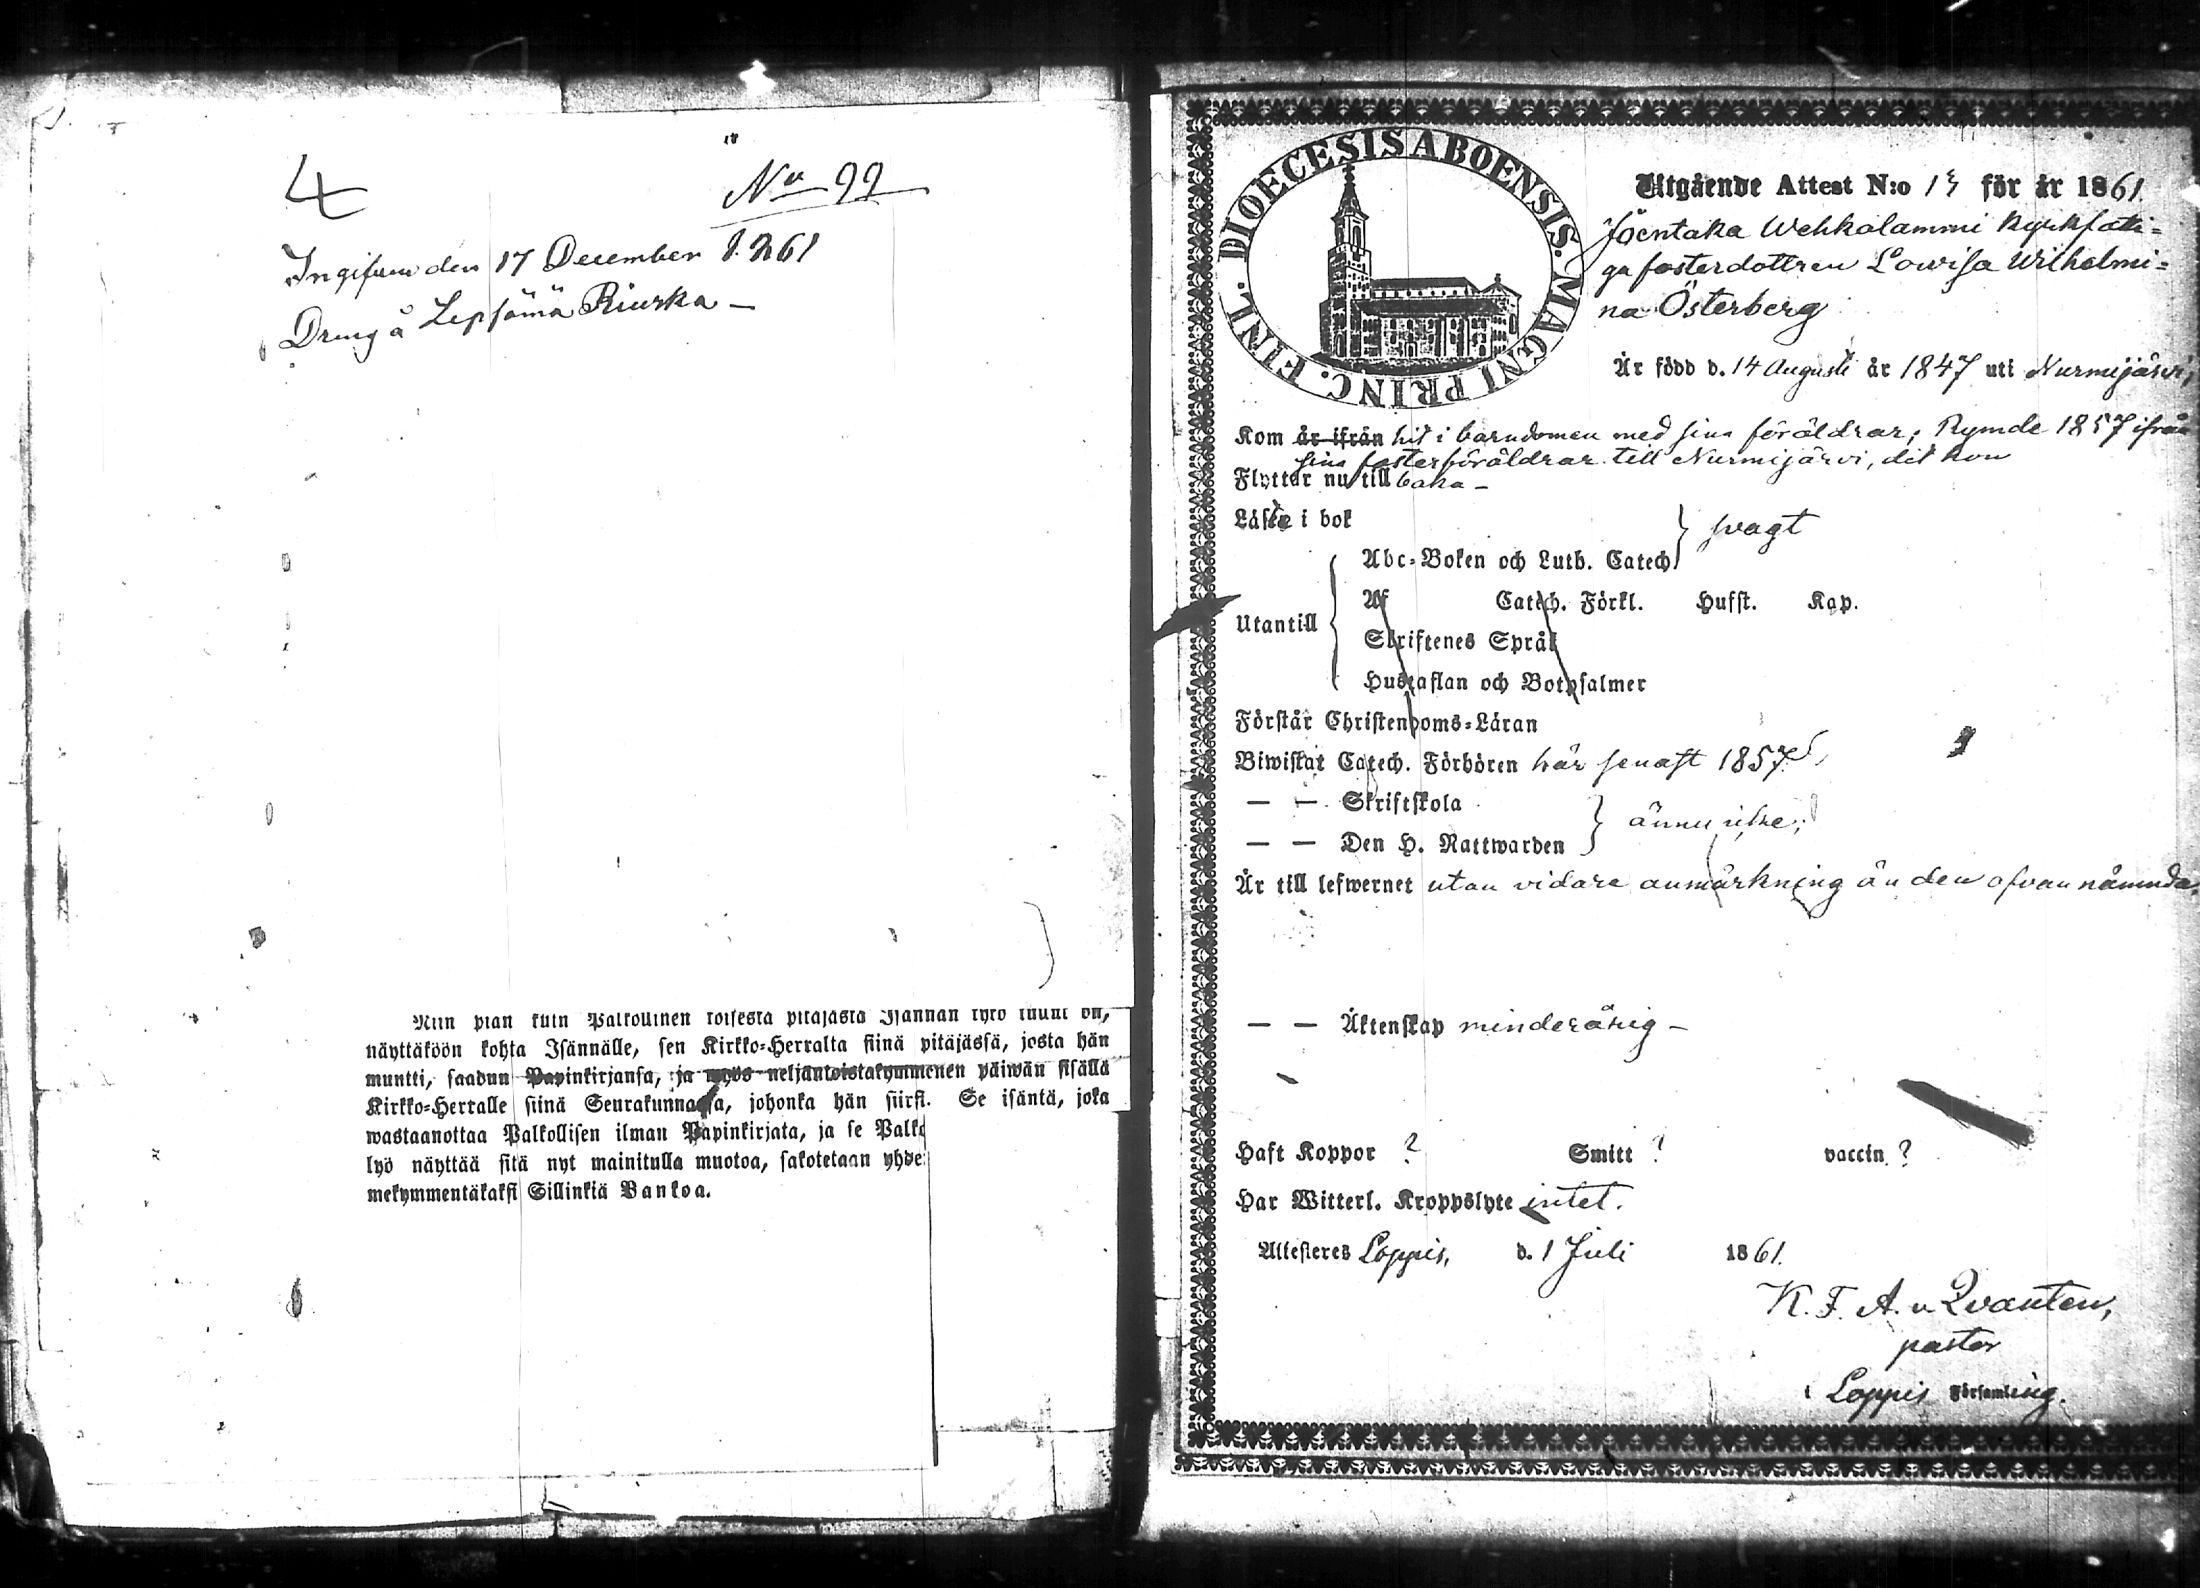 4
No 99
Ingifven den 17 December 1861
Dräng å Lepsämä Riuska –
Niin pian kuin Palkollinen toisesta pitäjästä Isännän työ tullut on,
näyttäköön kohta Isännälle, sen Kirkko-Herralta siinä pitäjässä, josta hän
muutti, saadun Papinkirjansa, ja myös neljäntoistakymmenen päiwän sisällä
Kirkko-Herralle siinä Seurakunnassa, johonka hän siirsi. Se isäntä, joka
wastaanottaa Palkollisen ilman Papinkirjata, ja se Palko
lyö näyttää sitä nyt mainitulla muotoa, sakotetaan yhde
mekymmentäkaksi Sillinkiä Bankoa.
DIOECESIS ABOENSIS. MAGNI PRINC. FINL.
Utgående Attest N:o 13 för år 1861.
Joentaka Wehkalammi
ga fosterdottren Lowisa Wilhelmi-
na Österberg
Är född d. 14 Augusti år 1847 uti Nurmijärvi,
Kom år ifrån hit i barndomen med sina föräldrar; Rymde 1857 ifrån
sina fosterföräldrar till Nurmijärvi, dit hon
Flyttar nu till baka –
Läser i bok
Abc-Boken och Luth. Catech. } svagt
Utantill
Af Catech. Förkl. Hufst. Kap.
Skriftenes Språk
Hustaflan och Botpsalmer
Förstår Christendoms-Läran
Biwistat Catech. Förhören här senast 1857
— — Skriftskola
— — Den H. Nattwarden } ännu icke;
Är till lefwernet utan vidare anmärkning än den ofvannämnda.
— — Äktenskap minderårig –
Haft Koppor ? Smitt ? vaccin. ?
Har Witterl. Kroppslyte intet.
Attesteres Loppis, d. 1 Juli 1861.
K. F. A. v Qvanten,
pastor
i Loppis Församling.